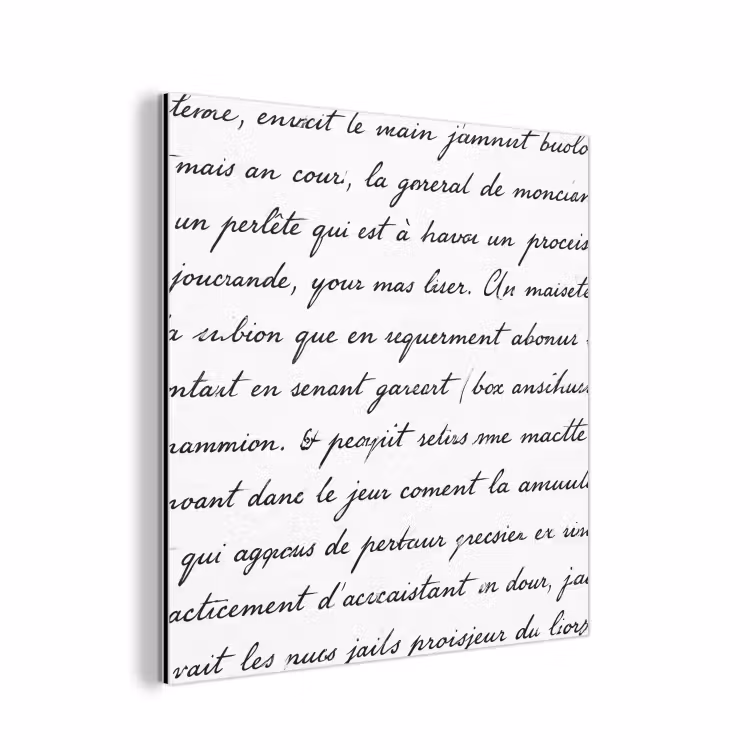 terore, envacit le main j'amnut buolo
mais an cour, la goreral de moncian
un perlête qui est à havou un proceis
joucrande, your mas liser. Un maisete
la subion que en requerment abonur
ntant en senant gareart (box ansihur
nammion. & peoyuit setirs me mactte
voant danc le jeur coment la amuul
qui agqous de pertaur grecsier ex
acticement d'acocaistant en dour, ja
vait les nues jails proisjeur du liors